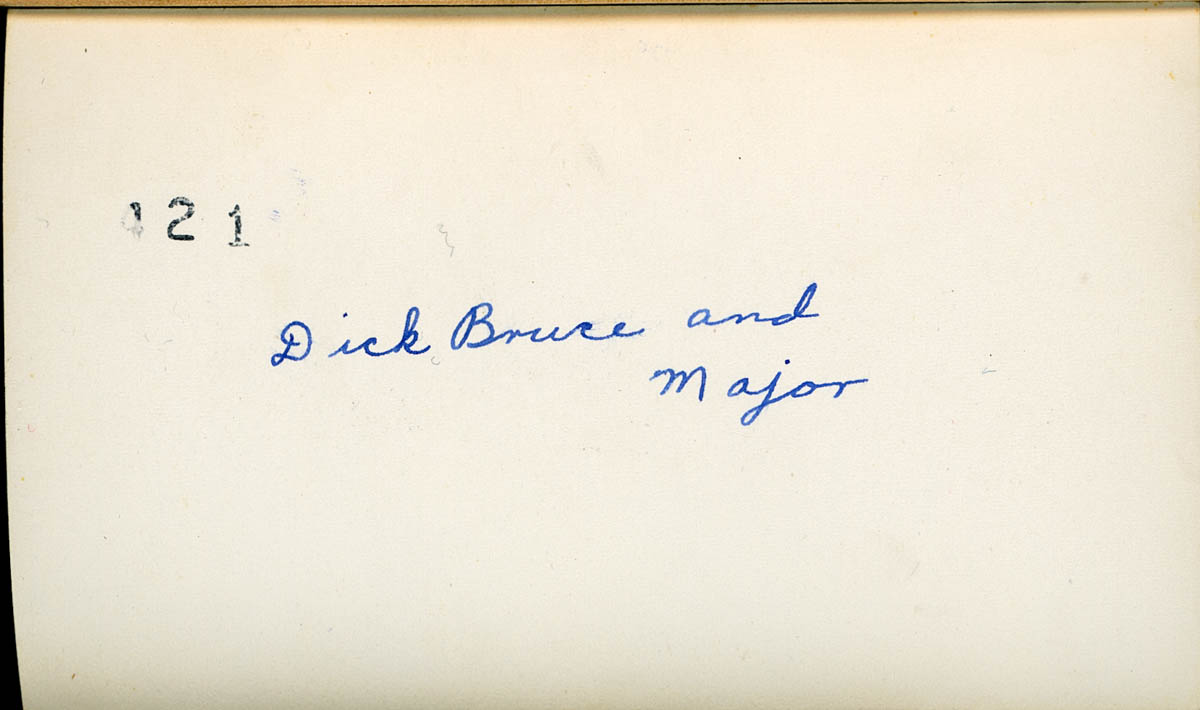 421
Dick Bruce and
Major